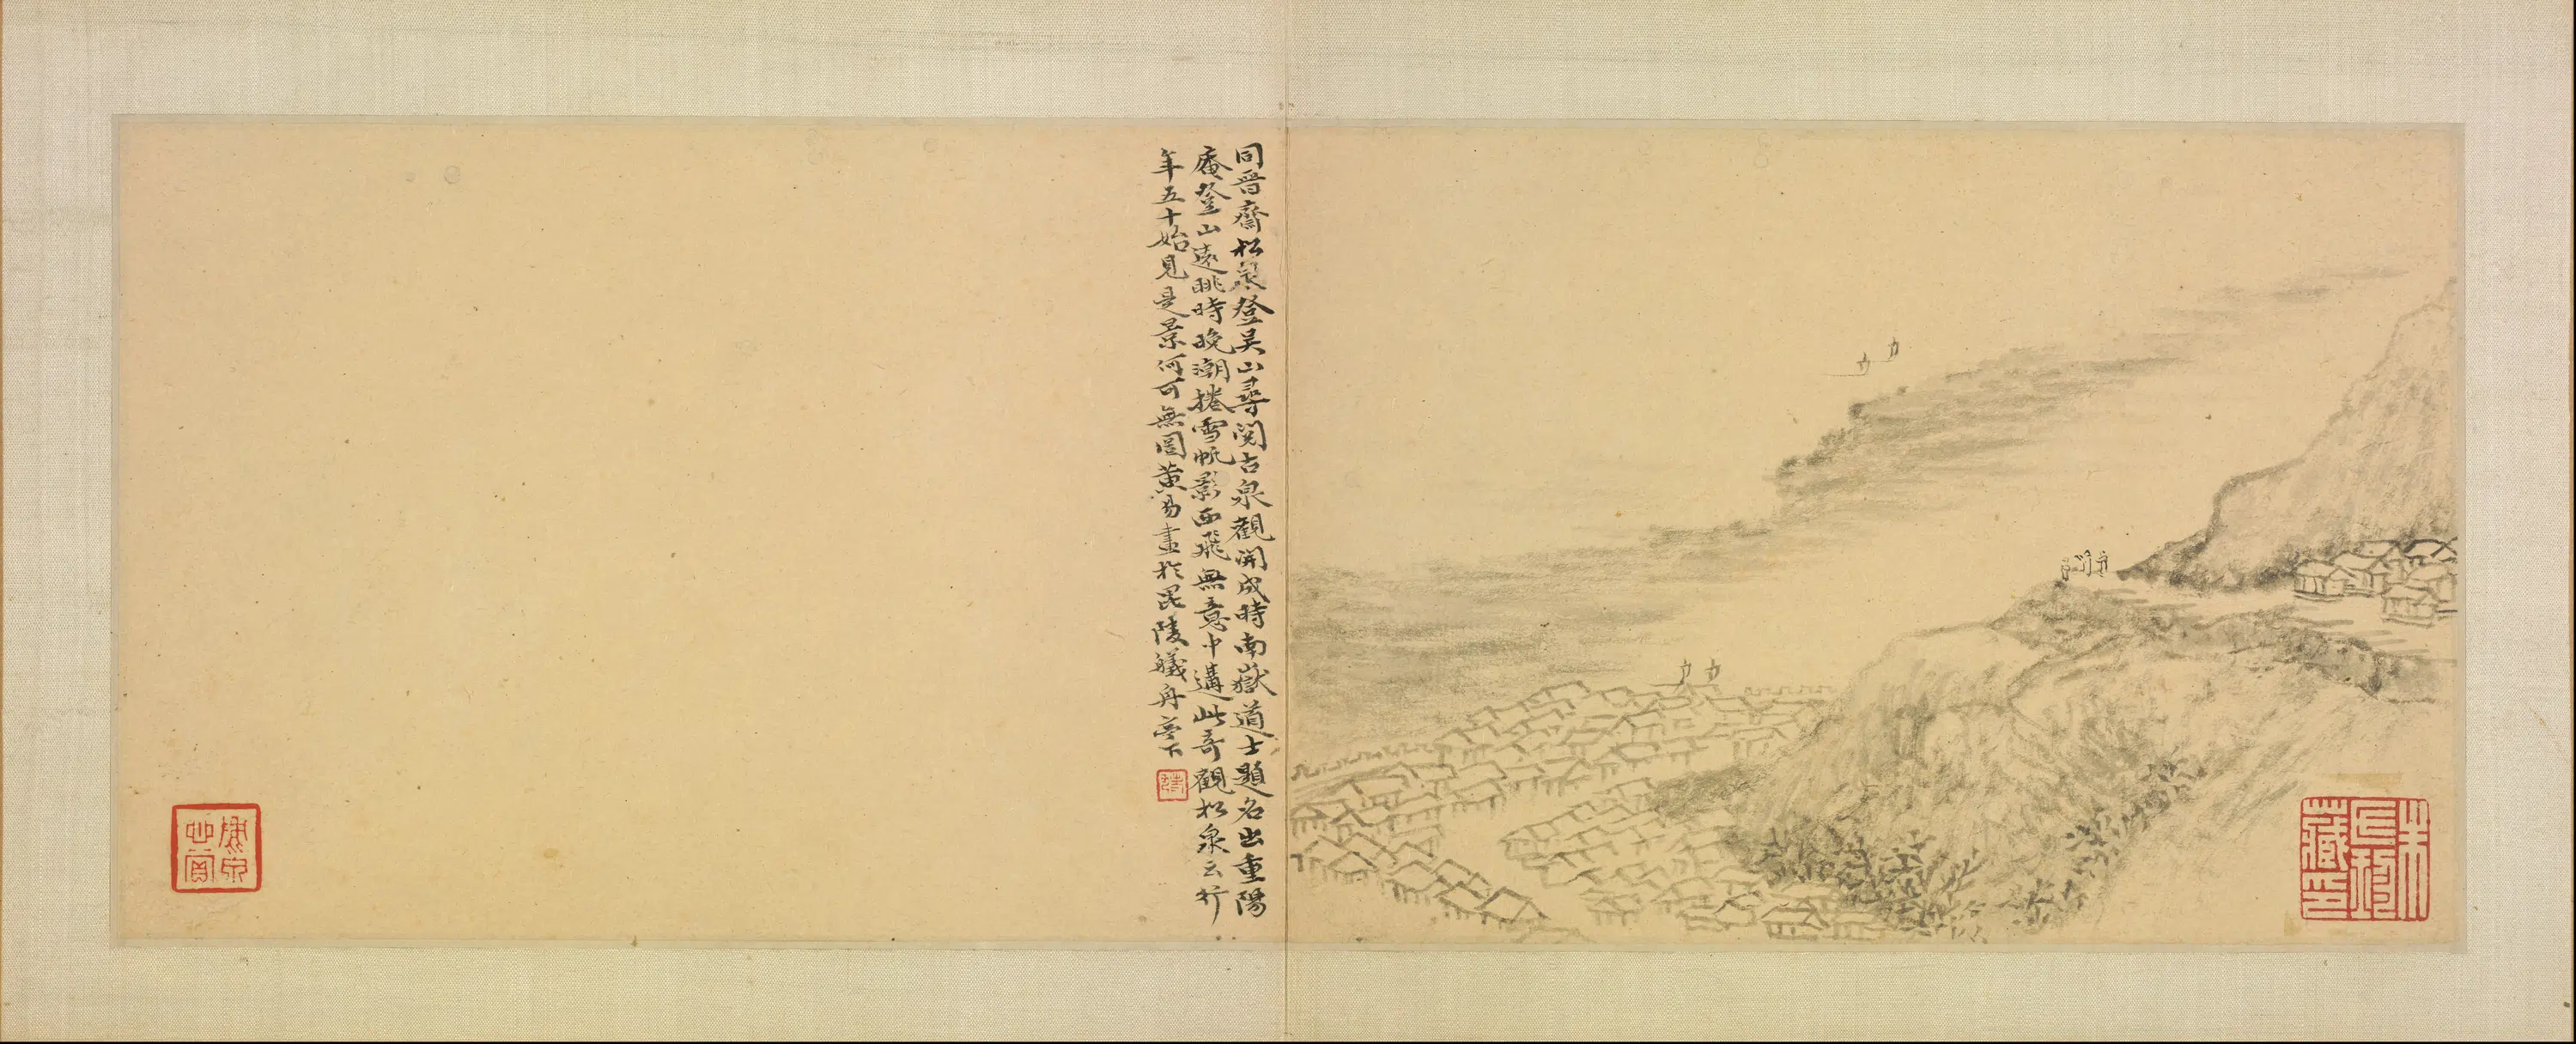 同晉齋松泉登吴山尋閱古泉觀開成時南嶽道士題名出重陽
庵登山遠眺時晚潮捲雪帆影西飛無意中遘此奇觀松泉云行
年五十始見是景何可無圖黃易畫於毘陵艤舟亭下